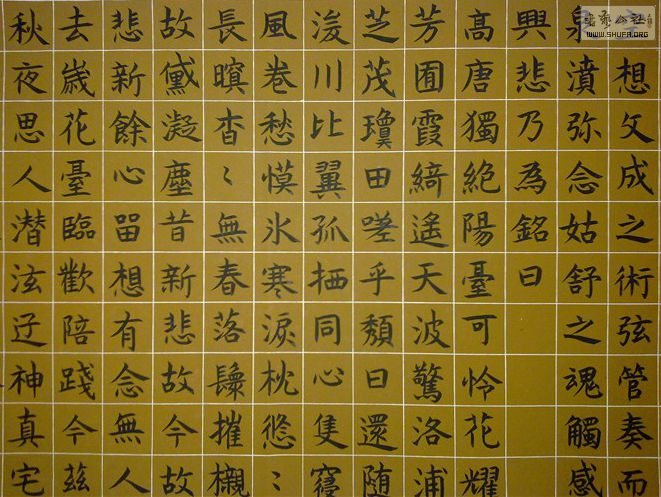 想文成之術弦管奏而
泉濆弥念姑舒之魂觸感
興悲乃為銘曰
高唐獨絕陽臺可怜花耀
芳囿霞綺遙天波驚洛浦
芝茂瓊田嗟乎頹日還随
浚川比翼孤栖同心隻寢
風卷愁慔氷寒淚枕悠〻
長暝杳〻無春落鬟摧櫬
故黛凝塵昔新悲故今故
悲新餘心留想有念無人
去歲花臺臨歡陪踐今茲
秋夜思人潜泫神真宅
WWW.SHUFA.ORG